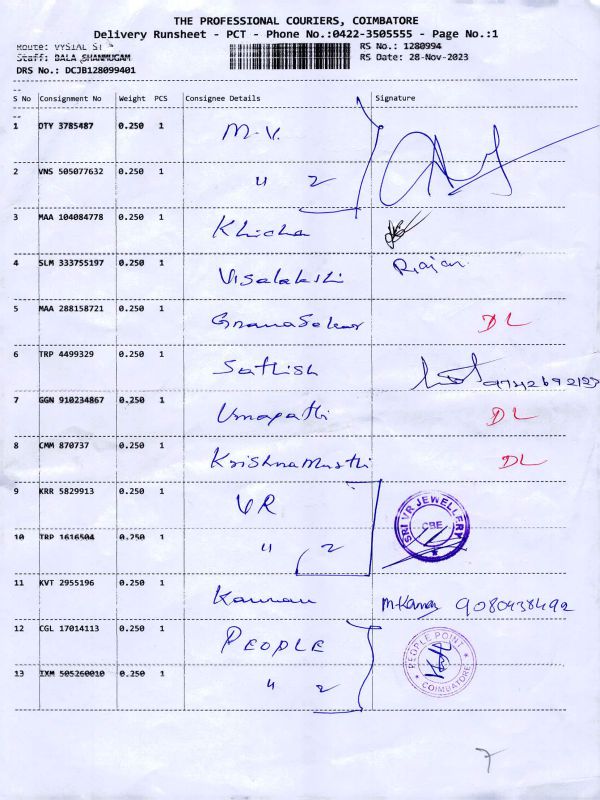 THE PROFESSIONAL COURIERS, COIMBATORE
Delivery Runsheet - PCT - Phone No.:0422-3505555 - Page No.:1
Route: VYSIAL ST RS No.: 1280994
Staff: BALA SHANMUGAM RS Date: 28-Nov-2023
DRS No.: DCJB128099401
S No Consignment No Weight PCS Consignee Details Signature
1 DTY 3785487 0.250 1 M.V.
2 VNS 505077632 0.250 1 " 2
3 MAA 104084778 0.250 1 Khicha
4 SLM 333755197 0.250 1 Visalakshi Rajan
5 MAA 288158721 0.250 1 GnanaSekar DL
6 TRP 4499329 0.250 1 Sathish
7 GGN 910234867 0.250 1 Umapathi DL
8 CMM 870737 0.250 1 KrishnaMurthi DL
9 KRR 5829913 0.250 1 VR SRI VR JEWELLERY CBE
10 TRP 1616504 0.250 1 " 2
11 KVT 2955196 0.250 1 Kannan 9080438492
12 CGL 17014113 0.250 1 PEOPLE PEOPLE POINT COIMBATORE
13 IXM 505260010 0.250 1 " 2
7